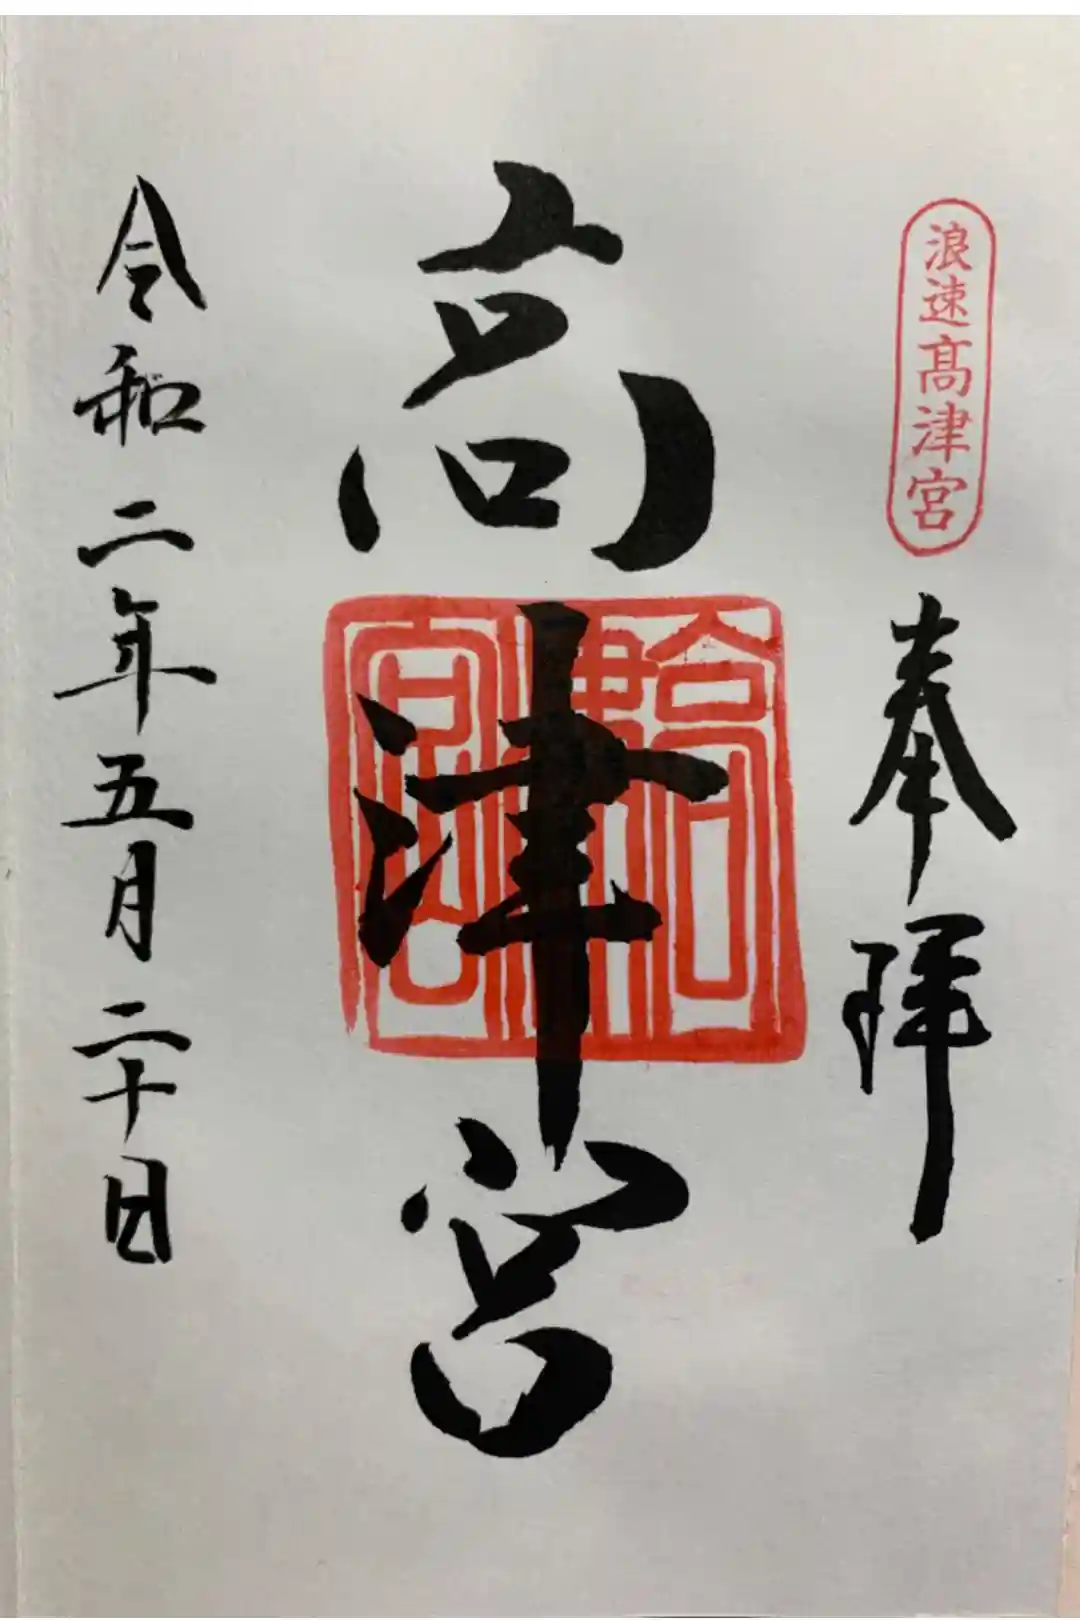 浪速髙津宮
奉拝
高津宮
高津宮
令和二年五月二十日